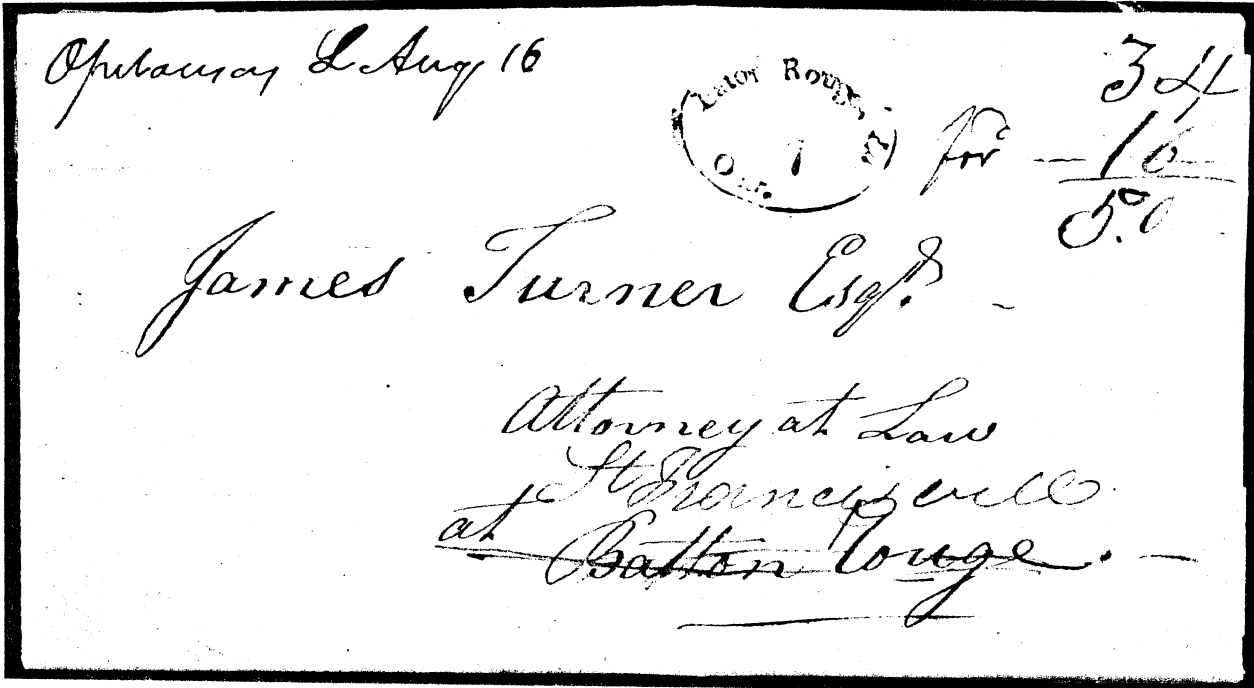 Opelousas L Aug 16
Baton Rouge, La
Oct. 7
for 34
16
50
James Turner Esqr.
Attorney at Law
St Francisville
at Batton Rouge.